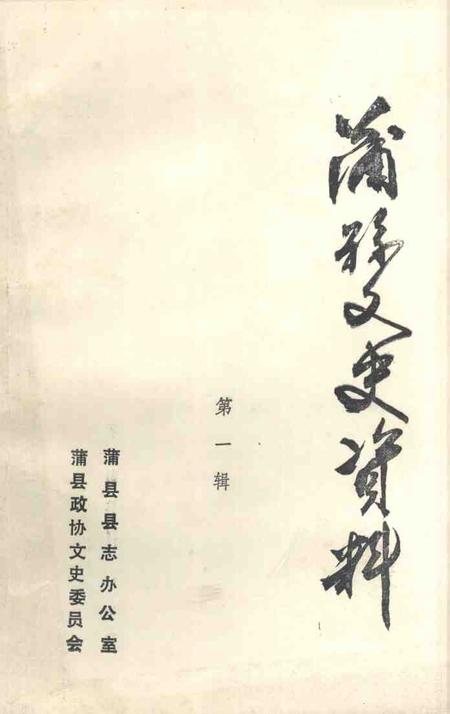 蒲縣文史资料
第一辑
蒲县县志办公室
蒲县政协文史委员会